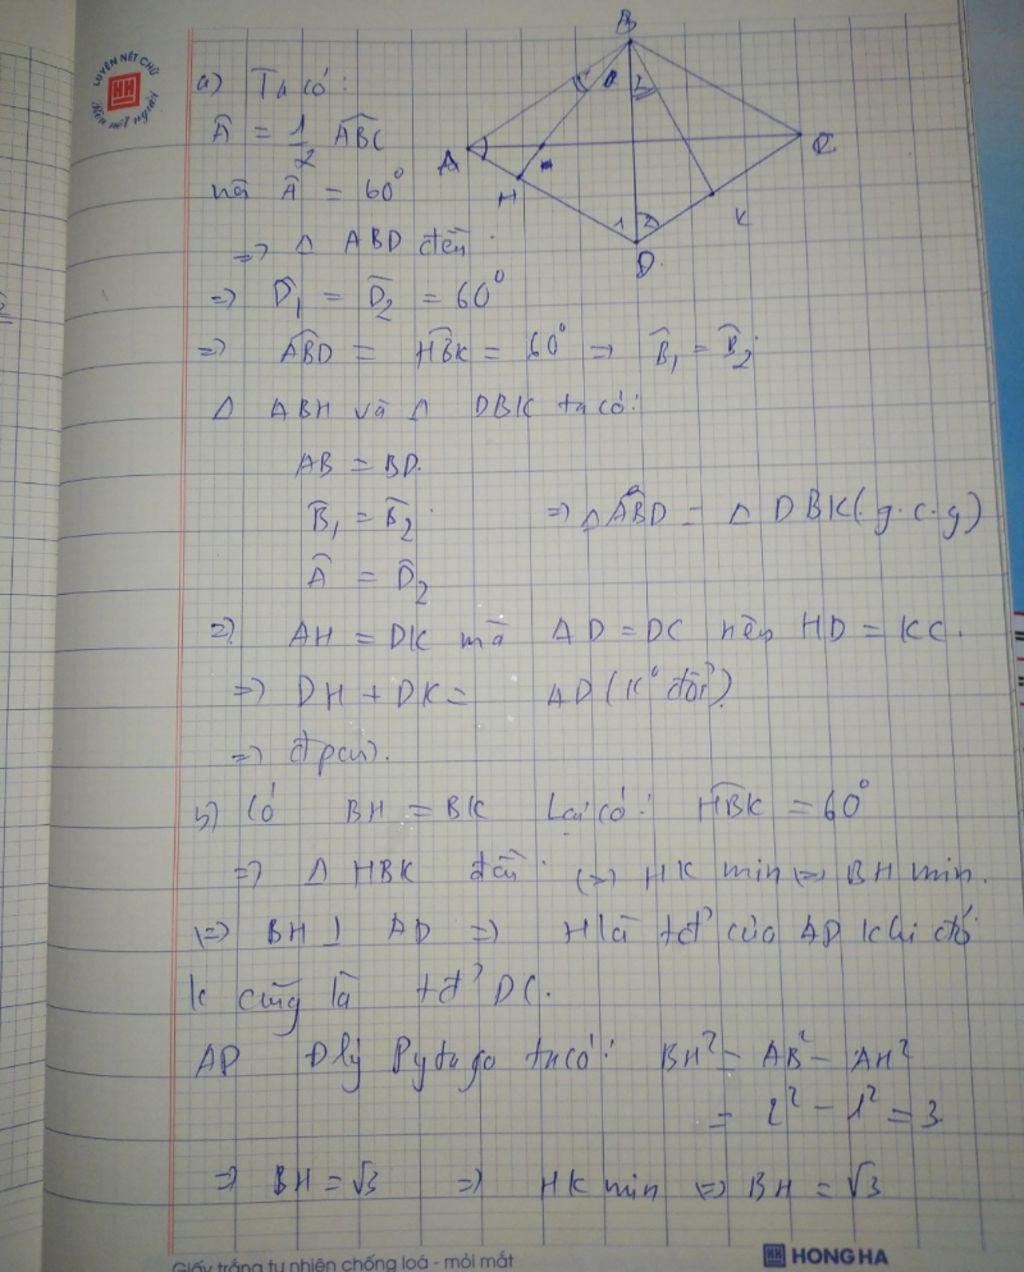 LUYỆN NÉT CHỮ
HH
Rèn nết người
a) Ta có:
Â = 1/2 ABC
mà Â = 60°
=> Δ ABD đều
=> D̂1 = D̂2 = 60°
=> ABD = HBK = 60° => B̂1 = B̂2
Δ ABH và Δ DBK ta có:
AB = BD.
B̂1 = B̂2 => Δ ABD = Δ DBK (g.c.g)
Â = D̂2
=> AH = DK mà AD = DC nên HD = KC.
=> DH + DK = AD (K° đổi)
=> đpcm.
b) Có BH = BK Lại có: HBK = 60°
=> Δ HBK đều <=> HK min <=> BH min.
<=> BH ⊥ AD => H là tđ' của AD khi đó
K cũng là tđ' DC.
AD Đlý Pytago ta có: BH² = AB² - AH²
= 2² - 1² = 3
=> BH = √3 => HK min <=> BH = √3
B
A
C
H
K
D
1
2
1
2
Giấy trắng tự nhiên chống loá - mỏi mắt
HH HONG HA